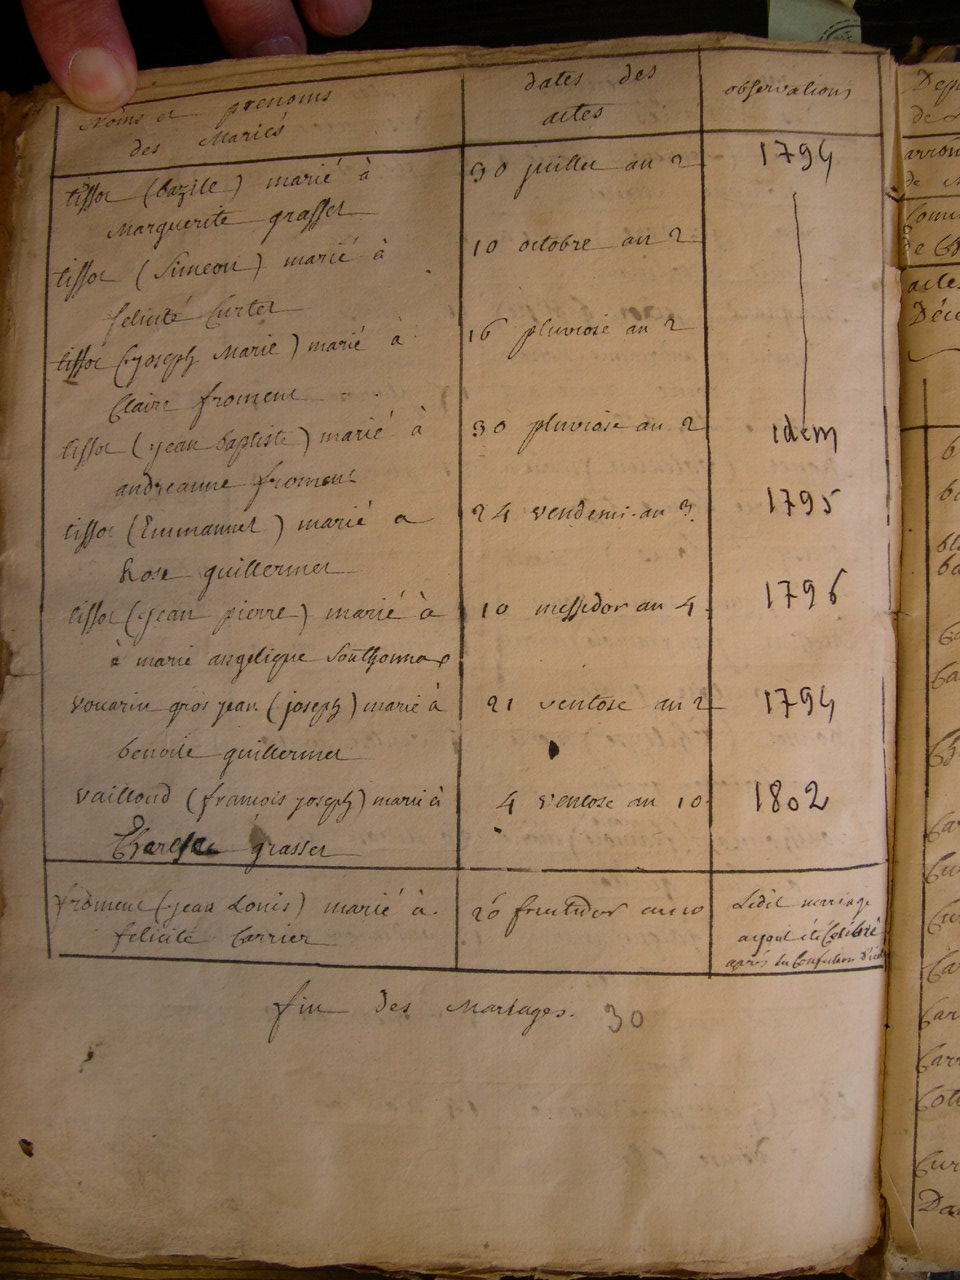 Noms et prenoms
des Mariés
dates des
actes
observations
tissot (bazile) marié à
Marguerite grasset
30 juillet an 2
1794
tissot (Simeon) marié à
felicité Curtet
10 octobre an 2
tissot (joseph Marie) marié à
Claire froment
16 pluviose an 2
tissot (jean baptiste) marié à
andreanne froment
30 pluviose an 2
idem
tissot (Emmanuel) marié a
Rose guillermet
24 vendemi. an 3
1795
tissot (jean pierre) marié à
à marie angelique Southonnax
10 messidor an 4
1796
vouarin gros jean (joseph) marié à
benoite guillermet
21 ventose an 2
1794
vailloud (francois joseph) marié à
Therese grasset
4 ventose an 10
1802
froment (jean Louis) marié à
felicité Carrier
20 fructidor an 10
Ledit marriage
ayant été Célébré
après la Confection
fin des Mariages. 30